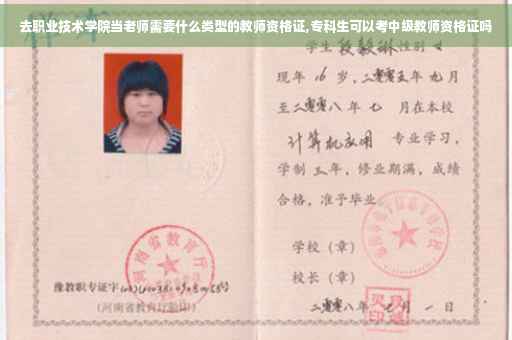 去职业技术学院当老师需要什么类型的教师资格证,专科生可以考中级教师资格证吗
学生 段毅琳 性别 女
现年 16 岁，二零零五年 九月
至二零零八年 七 月在本校
计算机应用 专业学习，
学制 三年，修业期满，成绩
合格，准予毕业
学校（章）
校长（章）
河南省教育厅
豫教职专证字
（河南省教育厅验印）
二零零八年 七月 一日